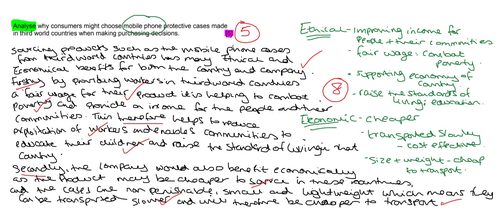 Analyse why consumers might choose mobile phone protective cases made
in third world countries when making purchasing decisions.
5
sourcing products such as the mobile phone cases
from third world countries has many Ethical and
Economical benefits for both the country and company.
Firstly by providing workers in third world countries
a fair wage for their product it is helping to combat
Poverty and provide a income for the people and their
communities. This therefore helps to reduce
exploitation of workers and enables communities to
educate their children and raise the standard of living in that
country.
Secondly, the company would also benefit economically
as the product may be cheaper to source in these countries,
and the cases are non perishable, small and lightweight which means they
can be transported slower and will therefore be cheaper to transport.
Ethical - Improving income for
People + their communities
- fair wage: combat
poverty
- supporting economy of
country
- raise the standards of
living: education.
8
Economic - cheaper
- transported slowly
- cost effective
- size + weight - cheap
to transport.